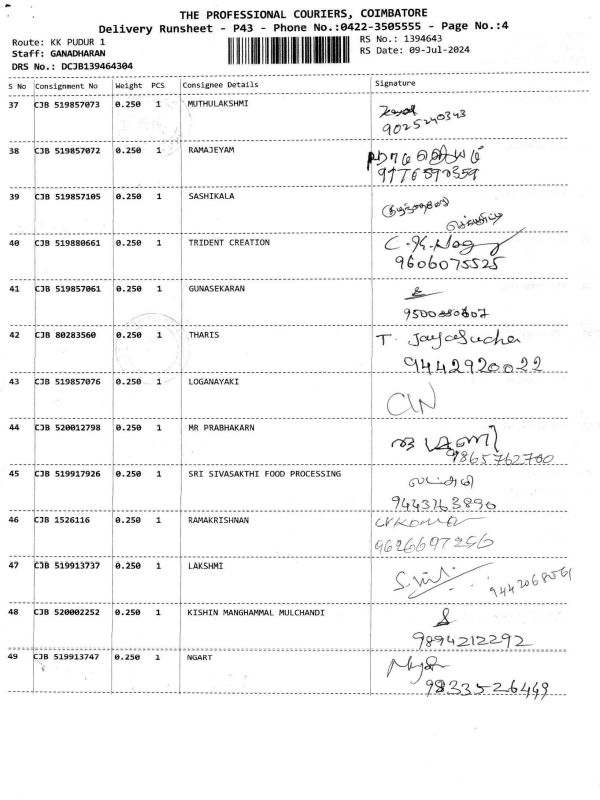 THE PROFESSIONAL COURIERS, COIMBATORE
Delivery Runsheet - P43 - Phone No.:0422-3505555 - Page No.:4
Route: KK PUDUR 1
RS No.: 1394643
Staff: GANADHARAN
RS Date: 09-Jul-2024
DRS No.: DCJB139464304
S No Consignment No Weight PCS Consignee Details Signature
37 CJB 519857073 0.250 1 MUTHULAKSHMI
9025240343
38 CJB 519857072 0.250 1 RAMAJEYAM
9176590359
39 CJB 519857105 0.250 1 SASHIKALA
40 CJB 519880661 0.250 1 TRIDENT CREATION
9606075525
41 CJB 519857061 0.250 1 GUNASEKARAN
42 CJB 80283560 0.250 1 THARIS T. Jayasudha
9442920022
43 CJB 519857076 0.250 1 LOGANAYAKI
44 CJB 520012798 0.250 1 MR PRABHAKARN
9865762700
45 CJB 519917926 0.250 1 SRI SIVASAKTHI FOOD PROCESSING
9443763890
46 CJB 1526116 0.250 1 RAMAKRISHNAN
9626697256
47 CJB 519913737 0.250 1 LAKSHMI
48 CJB 520002252 0.250 1 KISHIN MANGHAMMAL MULCHANDI
9894212292
49 CJB 519913747 0.250 1 NGART
9833526449